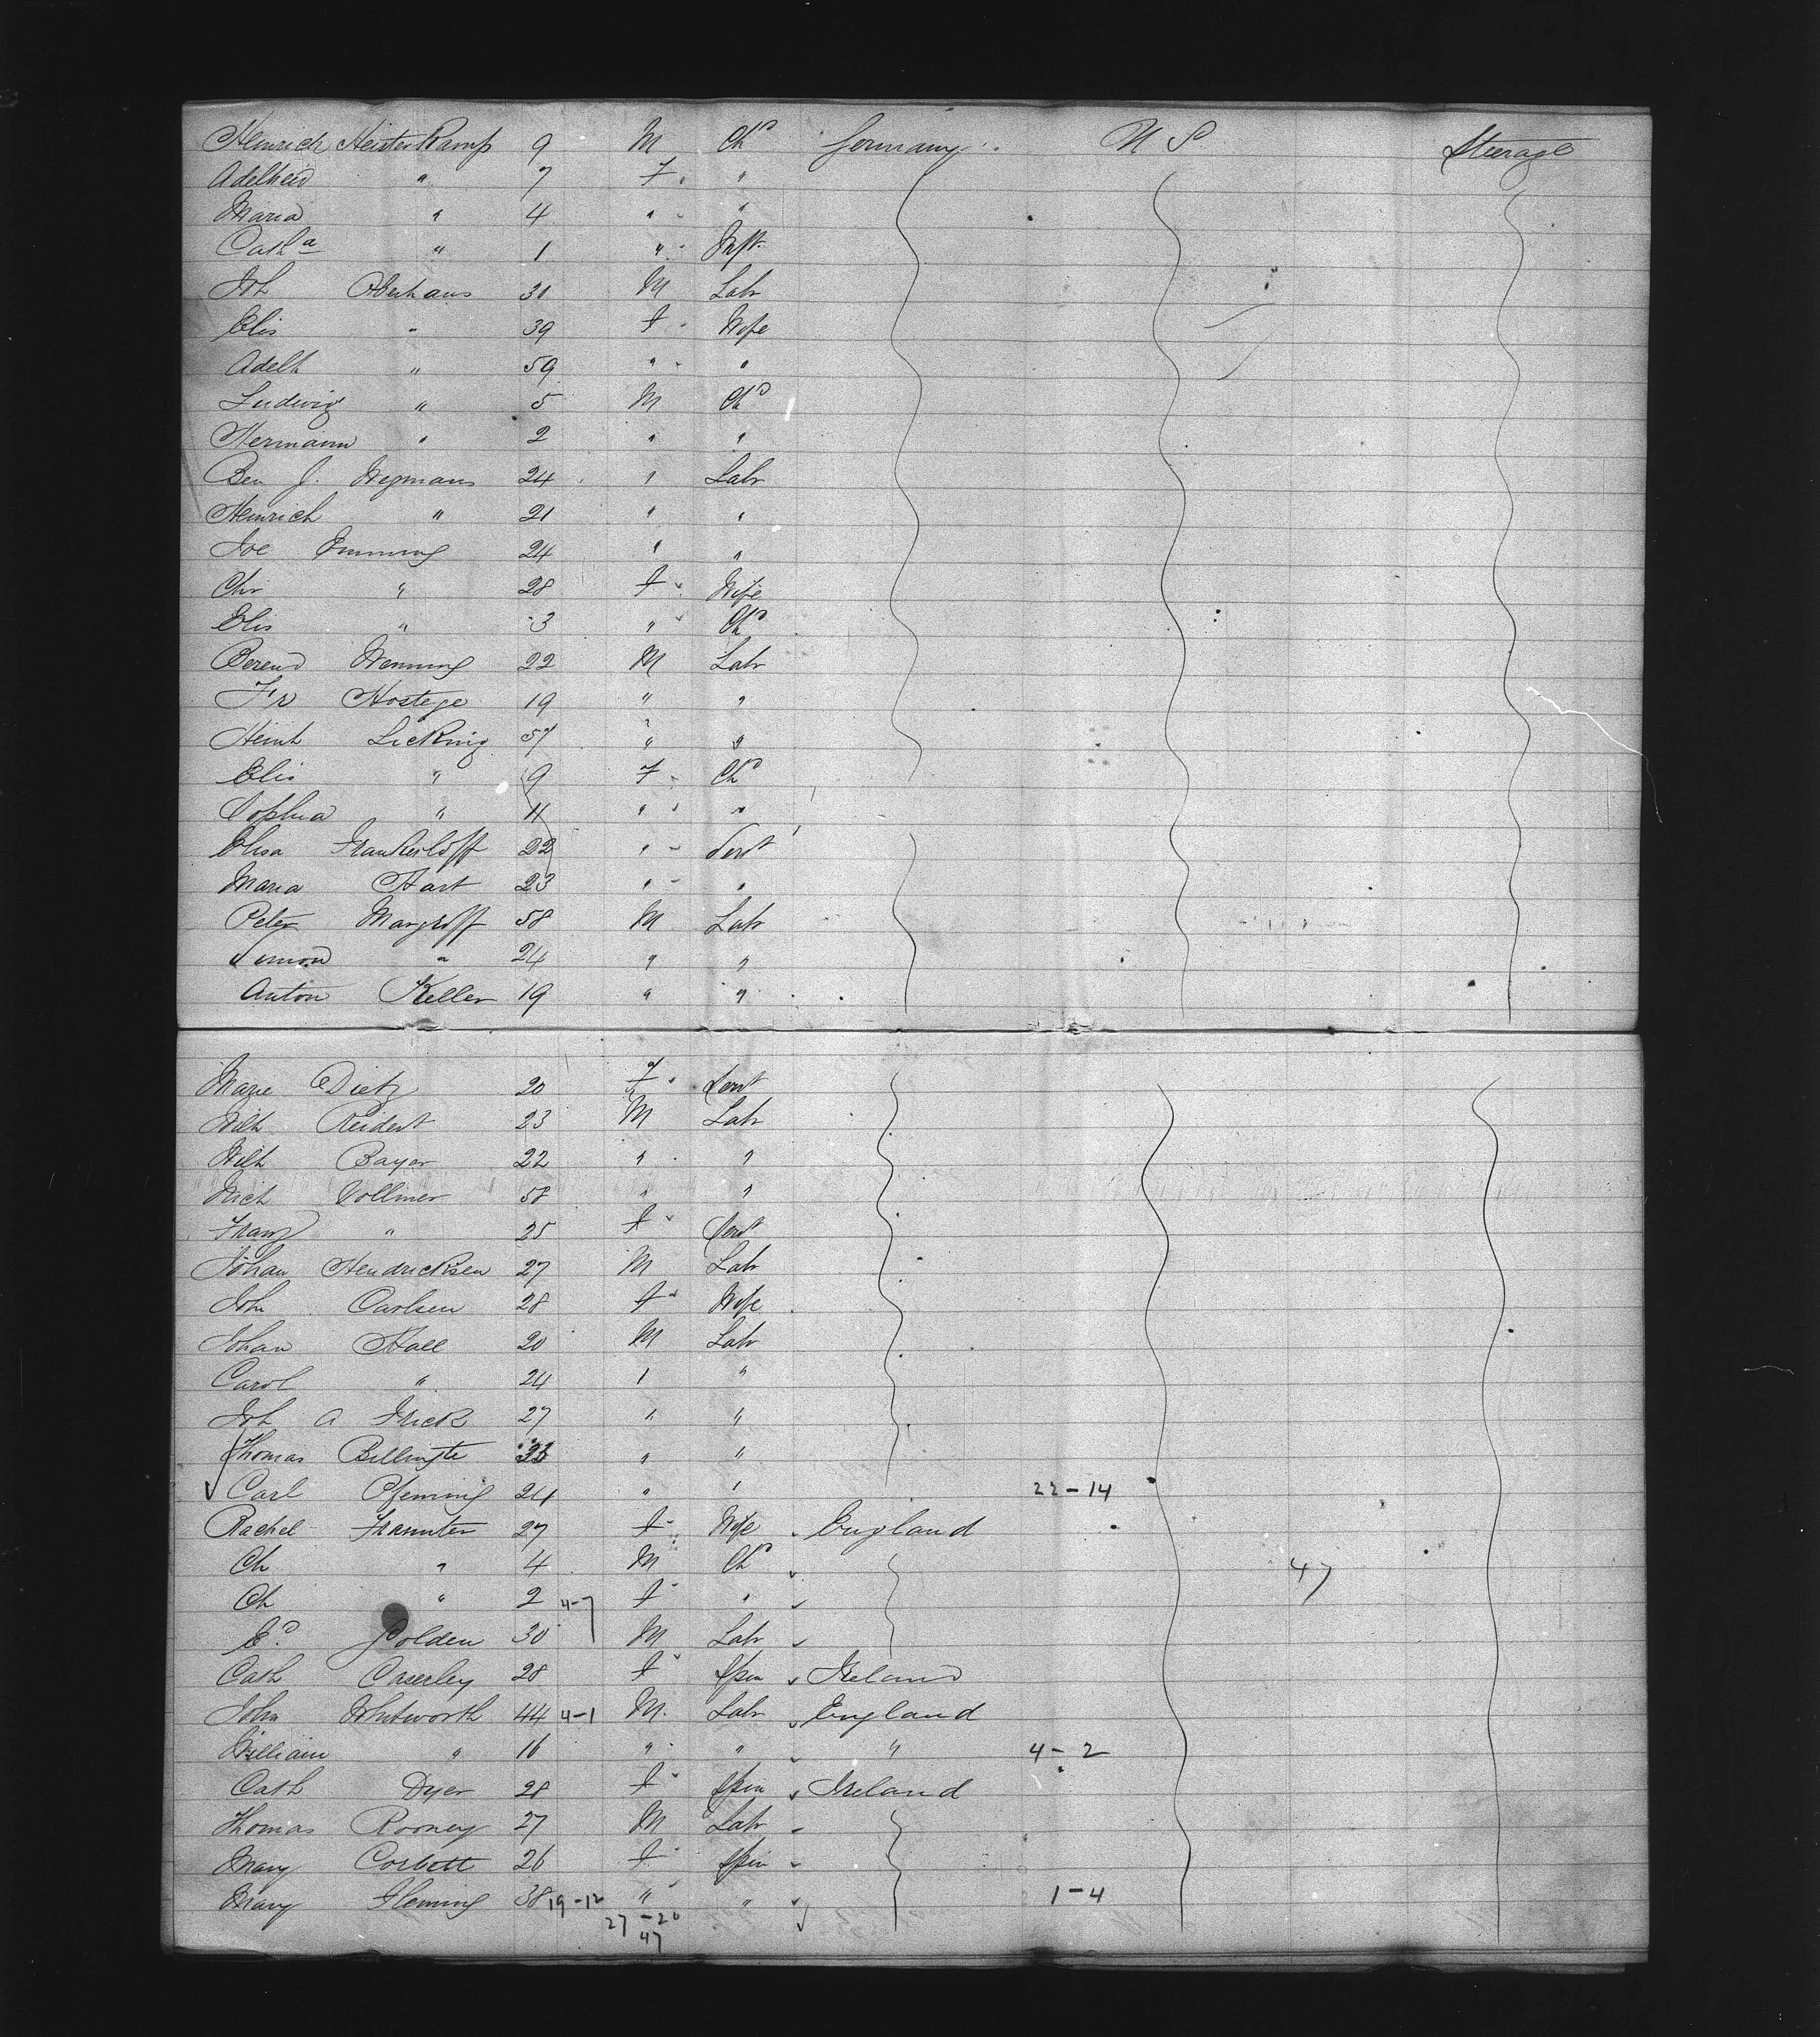 Heinrich Heisterkamp 9 M Chd Germany U S Steerage
Adelheid " 7 F "
Maria " 4 " "
Catha " 1 " Inft
Joh 30 M Labr
Elis " 39 F Wife
Adelh " 59 " "
Ludwig " 5 M Chd
Hermann " 2 " "
Ben J. Wegmans 24 " Labr
Heinrich " 21 " "
Joe 24 " "
Chr " 28 F Wife
Elis " 3 " Chd
Berend Wenning 22 M Labr
Fr Hostege 19 " "
Heinh Licking 57 " "
Elis " 9 F Chd
Sophia " 11 " "
Elisa 22 " Servt
Maria Hart 23 " "
Peter 58 M Labr
Simon " 24 " "
Anton Keller 19 " "
Marie Dietz 20 F Servt
Wilh Reidert 23 M Labr
Wilh Bayer 22 " "
Mich Vollmer 58 " "
Franz " 25 F Servt
Johan Hendricksen 27 M Labr
Joh Carlsen 28 F Wife
Johan Hall 20 M Labr
Carol " 24 " "
Joh A Frick 27 " "
Thomas " "
Carl 24 " " 22-14
Rachel 27 F Wife England
Ch " 4 M Chd 47
Ch " 2 4-7 F "
Ed Golden 30 M Labr
Cath Caserley 28 F Spin Ireland
John Whitworth 44 4-1 M Labr England
William " 16 " " " 4-2
Cath Dyer 28 F Spin Ireland
Thomas Rooney 27 M Labr
Mary Corbett 26 F Spin
Mary Fleming 38 19-12 " " 1-4
27-20
47